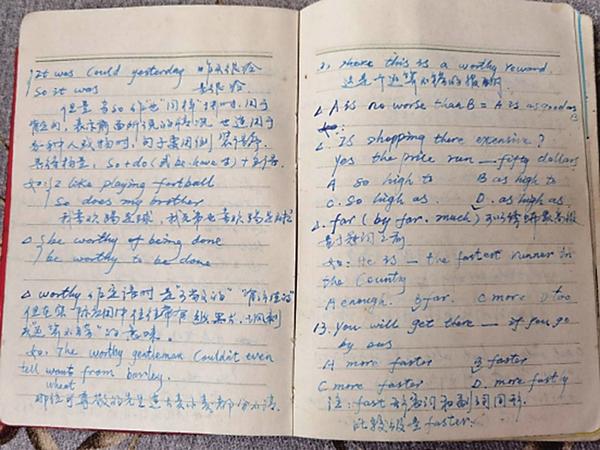 It was Could yesterday 昨天很冷
So it was 是很冷
但是当so作也"同样"讲时,用于
肯定句,表示前面所说的情况也适用于
另一种人或物时,句子要用倒装语序
其结构是:So+do(或be.have等)+主语.
如:I like playing football
So does my brother
我喜欢踢足球,我兄弟也喜欢踢足球
△ be worthy of being done
be worthy to be done
△ worthy 作定语时是"可敬的"
但在实际应用中往往带有
或"的意味.
如:The worthy gentleman Couldn't even
tell want from barley.
wheat
那位可尊敬的先生连大麦小麦都分不清
3, this is a worthy reward.
这是个
2. A is no worse than B = A is as good as
B
2. Is shopping there exensive?
Yes the price run — fifty dollars
A so high to B as high to
C. so high as. D. as high as.
2. far (by far. much) 可以修饰最高级
副词之前
如: He is — the fastest runner in
the Country
A enough. B far. C more D too
13. You will get there — if you go
by
A more faster B faster
C more faster D. more fastly
注: fast 形容词和副词同形.
比较级是 faster.